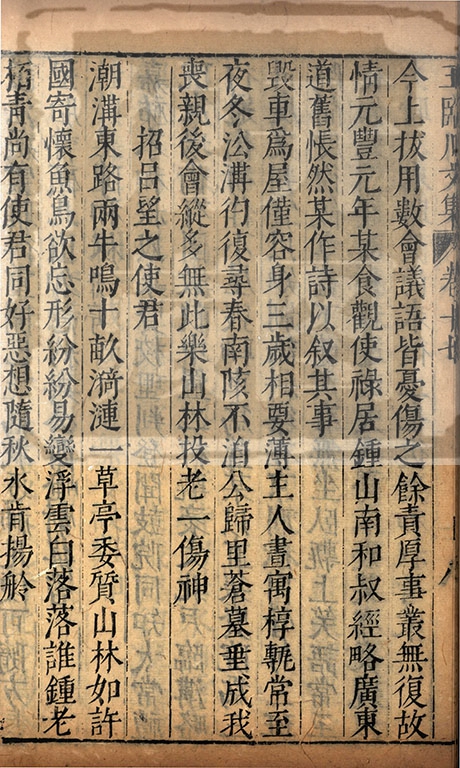 今上拔用數會議語皆憂傷之餘責厚事叢無復故
情元豐元年某食觀使祿居鍾山南和叔經略廣東
道舊悵然某作詩以叙其事
毀車為屋僅容身三歲相要薄主人書寓椁軧常至
夜冬沿溝彴復尋春南陔不洎公歸里蒼墓垂成我
喪親後會縱多無此樂山林投老一傷神
招呂望之使君
潮溝東路兩牛鳴十畝漪漣一草亭委質山林如許
國寄懷魚鳥欲忘形紛紛易變浮雲白落落誰鍾老
栢青尚有使君同好惡想隨秋水肯揚舲